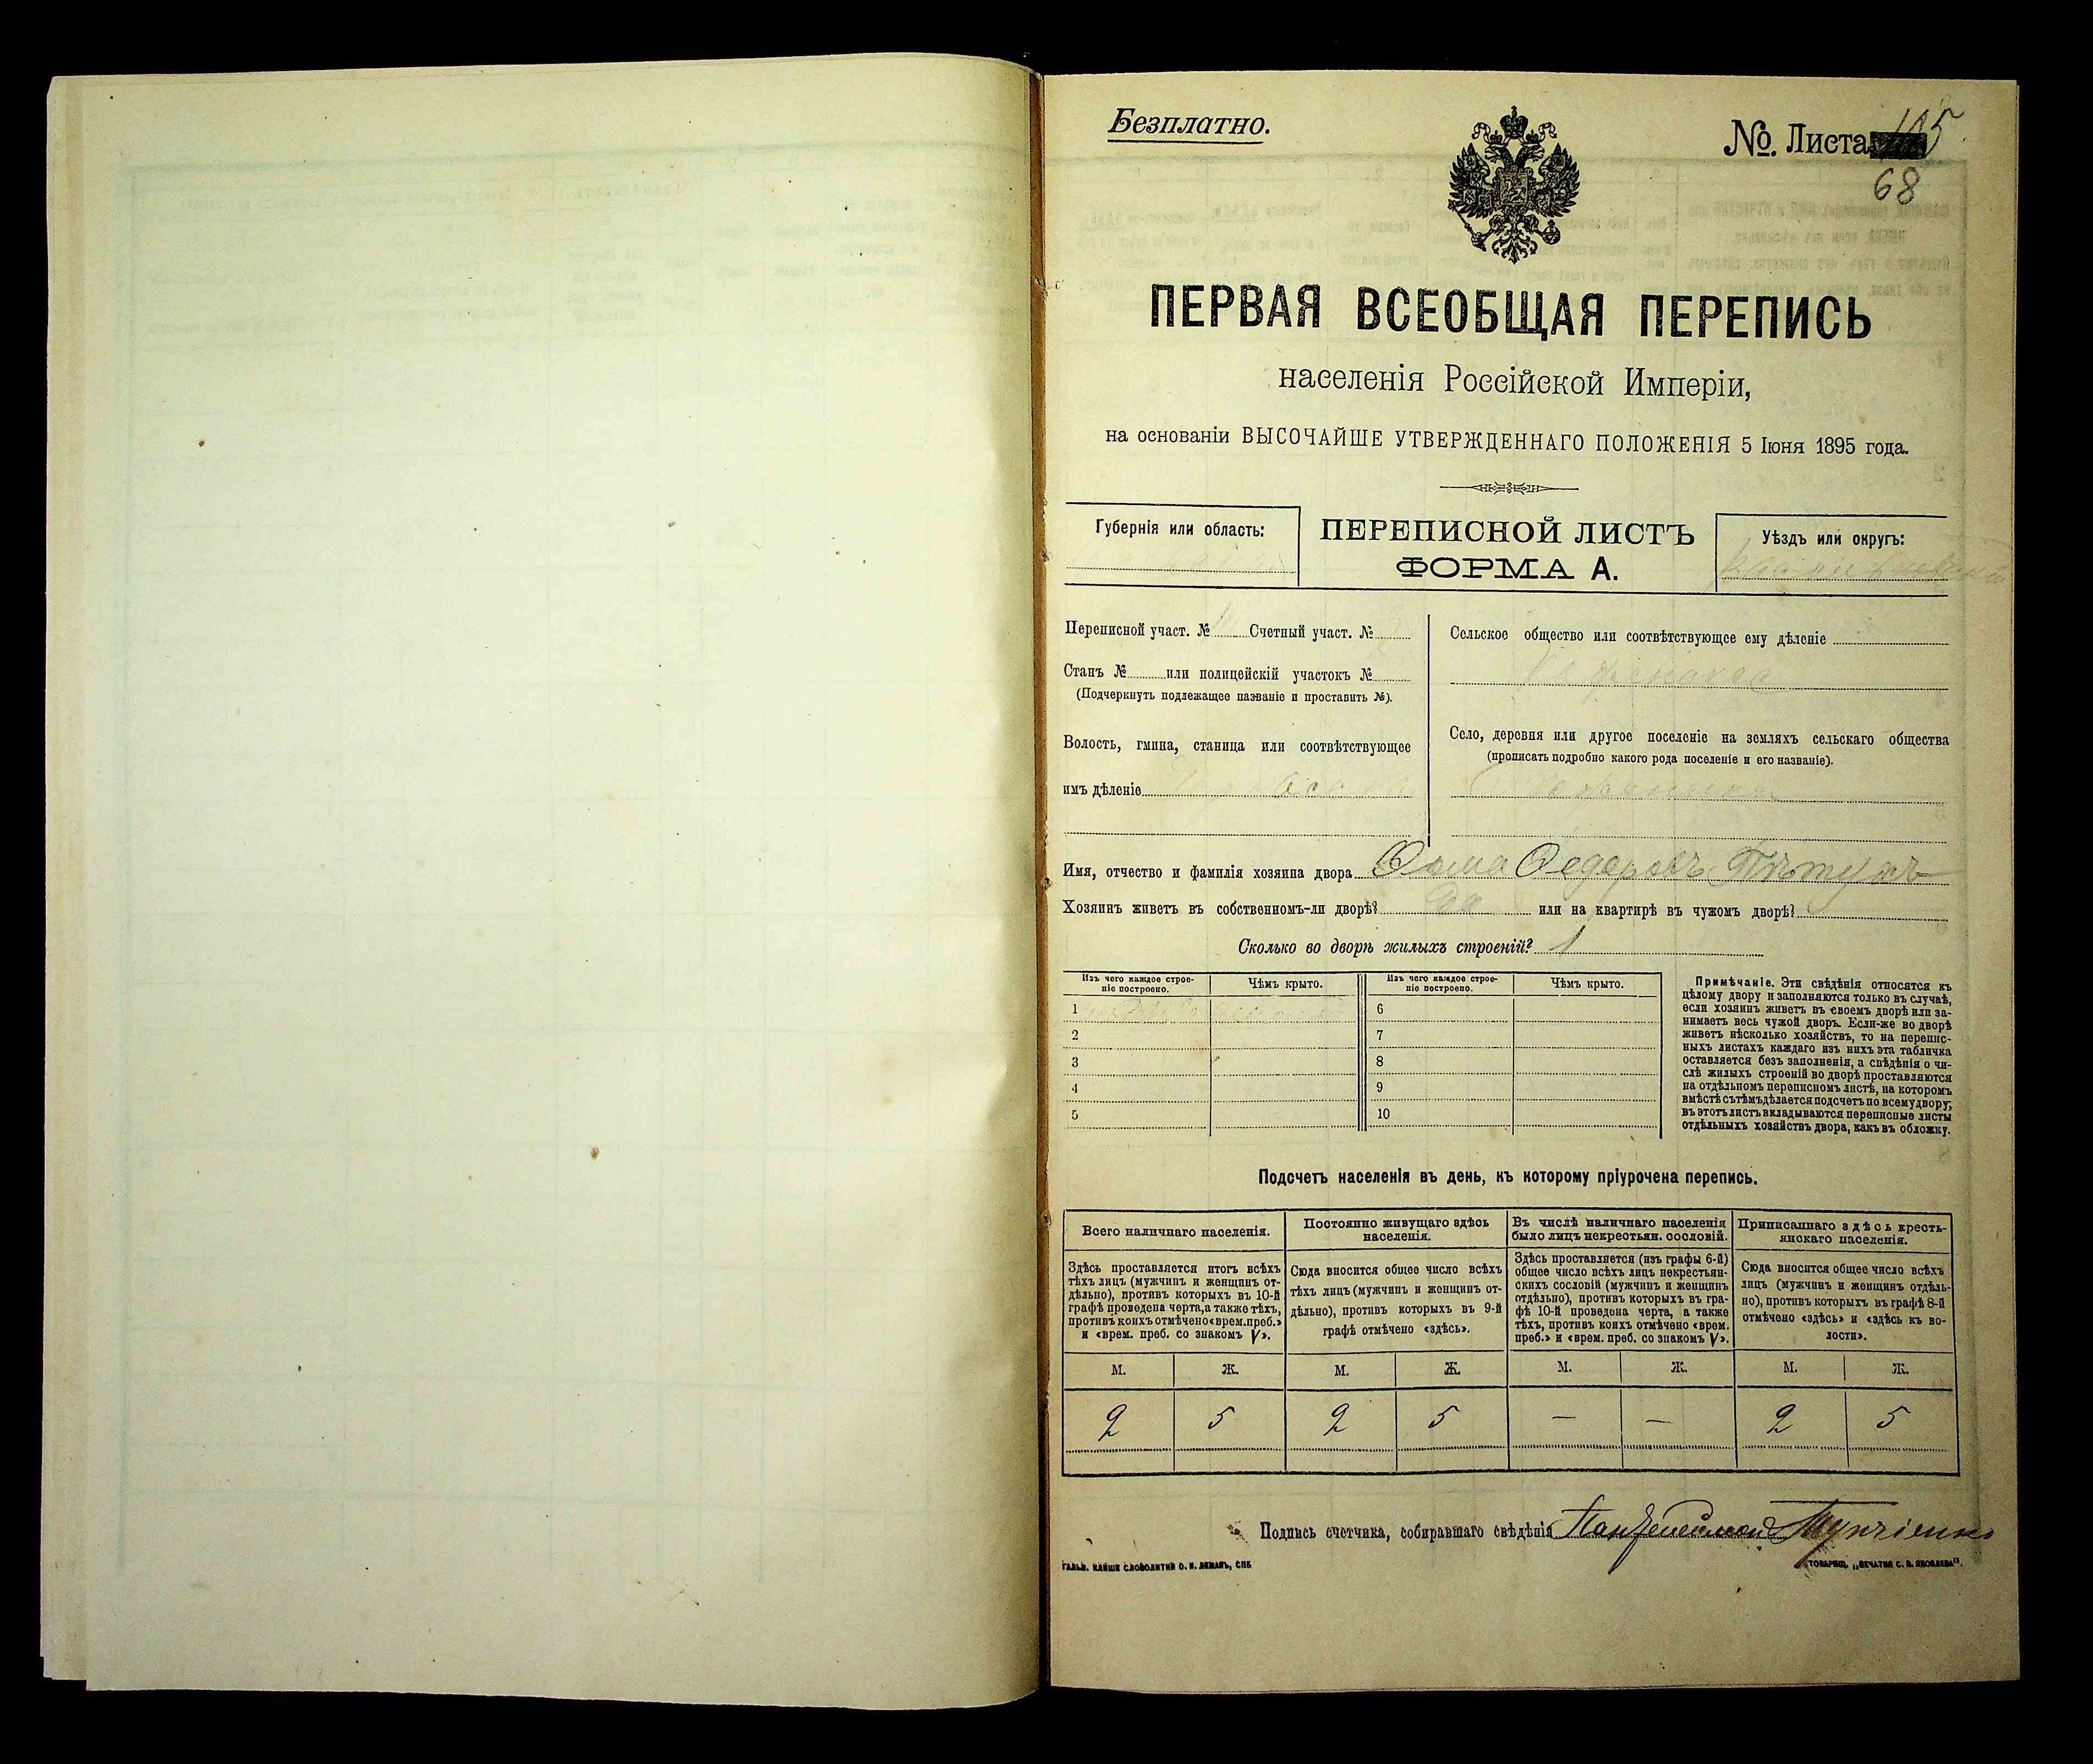 Безплатно.
№. Листа 105
68
ПЕРВАЯ ВСЕОБЩАЯ ПЕРЕПИСЬ
населенія Россійской Имперіи,
на основаніи ВЫСОЧАЙШЕ УТВЕРЖДЕННАГО ПОЛОЖЕНІЯ 5 Іюня 1895 года.
Губернія или область:
ПЕРЕПИСНОЙ ЛИСТЪ
ФОРМА А.
Уѣздъ или округъ:
Переписной участ. № Счетный участ. №
Станъ № или полицейскій участокъ №
(Подчеркнуть подлежащее названіе и проставить №).
Волость, гмина, станица или соотвѣтствующее
имъ дѣленіе
Сельское общество или соотвѣтствующее ему дѣленіе
Село, деревня или другое поселеніе на земляхъ сельскаго общества
(прописать подробно какого рода поселеніе и его названіе).
Имя, отчество и фамилія хозяина двора Фома Федоровъ
Хозяинъ живетъ въ собственномъ-ли дворѣ? да или на квартирѣ въ чужомъ дворѣ?
Сколько во дворѣ жилыхъ строеній? 1
Изъ чего каждое строе-
ніе построено.
Чѣмъ крыто.
Изъ чего каждое строе-
ніе построено.
Чѣмъ крыто.
1 6
2 7
3 8
4 9
5 10
Примѣчаніе. Эти свѣдѣнія относятся къ
цѣлому двору и заполняются только въ случаѣ,
если хозяинъ живетъ въ своемъ дворѣ или за-
нимаетъ весь чужой дворъ. Если-же во дворѣ
живетъ нѣсколько хозяйствъ, то на перепис-
ныхъ листахъ каждаго изъ нихъ эта табличка
оставляется безъ заполненія, а свѣдѣнія о чи-
слѣ жилыхъ строеній во дворѣ проставляются
на отдѣльномъ переписномъ листѣ, на которомъ
вмѣстѣ съ тѣмъ дѣлается подсчетъ по всему двору;
въ этотъ листъ вкладываются переписные листы
отдѣльныхъ хозяйствъ двора, какъ въ обложку.
Подсчетъ населенія въ день, къ которому пріурочена перепись.
Всего наличнаго населенія.
Здѣсь проставляется итогъ всѣхъ
тѣхъ лицъ (мужчинъ и женщинъ от-
дѣльно), противъ которыхъ въ 10-й
графѣ проведена черта, а также тѣхъ,
противъ коихъ отмѣчено «врем. преб.»
и «врем. преб. со знакомъ V».
Постоянно живущаго здѣсь
населенія.
Сюда вносится общее число всѣхъ
тѣхъ лицъ (мужчинъ и женщинъ от-
дѣльно), противъ которыхъ въ 9-й
графѣ отмѣчено «здѣсь».
Въ числѣ наличнаго населенія
было лицъ некрестьян. сословій.
Здѣсь проставляется (изъ графы 6-й)
общее число всѣхъ лицъ некрестьян-
скихъ сословій (мужчинъ и женщинъ
отдѣльно), противъ которыхъ въ гра-
фѣ 10-й проведена черта, а также
тѣхъ, противъ коихъ отмѣчено «врем.
преб.» и «врем. преб. со знакомъ V».
Приписаннаго здѣсь кресть-
янскаго населенія.
Сюда вносится общее число всѣхъ
лицъ (мужчинъ и женщинъ отдѣль-
но), противъ которыхъ въ графѣ 8-й
отмѣчено «здѣсь» и «здѣсь къ во-
лости».
М. Ж. М. Ж. М. Ж. М. Ж.
2 5 2 5 — — 2 5
Подпись счетчика, собиравшаго свѣдѣнія
ГАЛЬВ. КЛИШЕ СЛОВОЛИТНИ О. И. ЛЕМАНЪ, СПБ
ТОВАРИЩ. „ПЕЧАТНЯ С. П. ЯКОВЛЕВА".